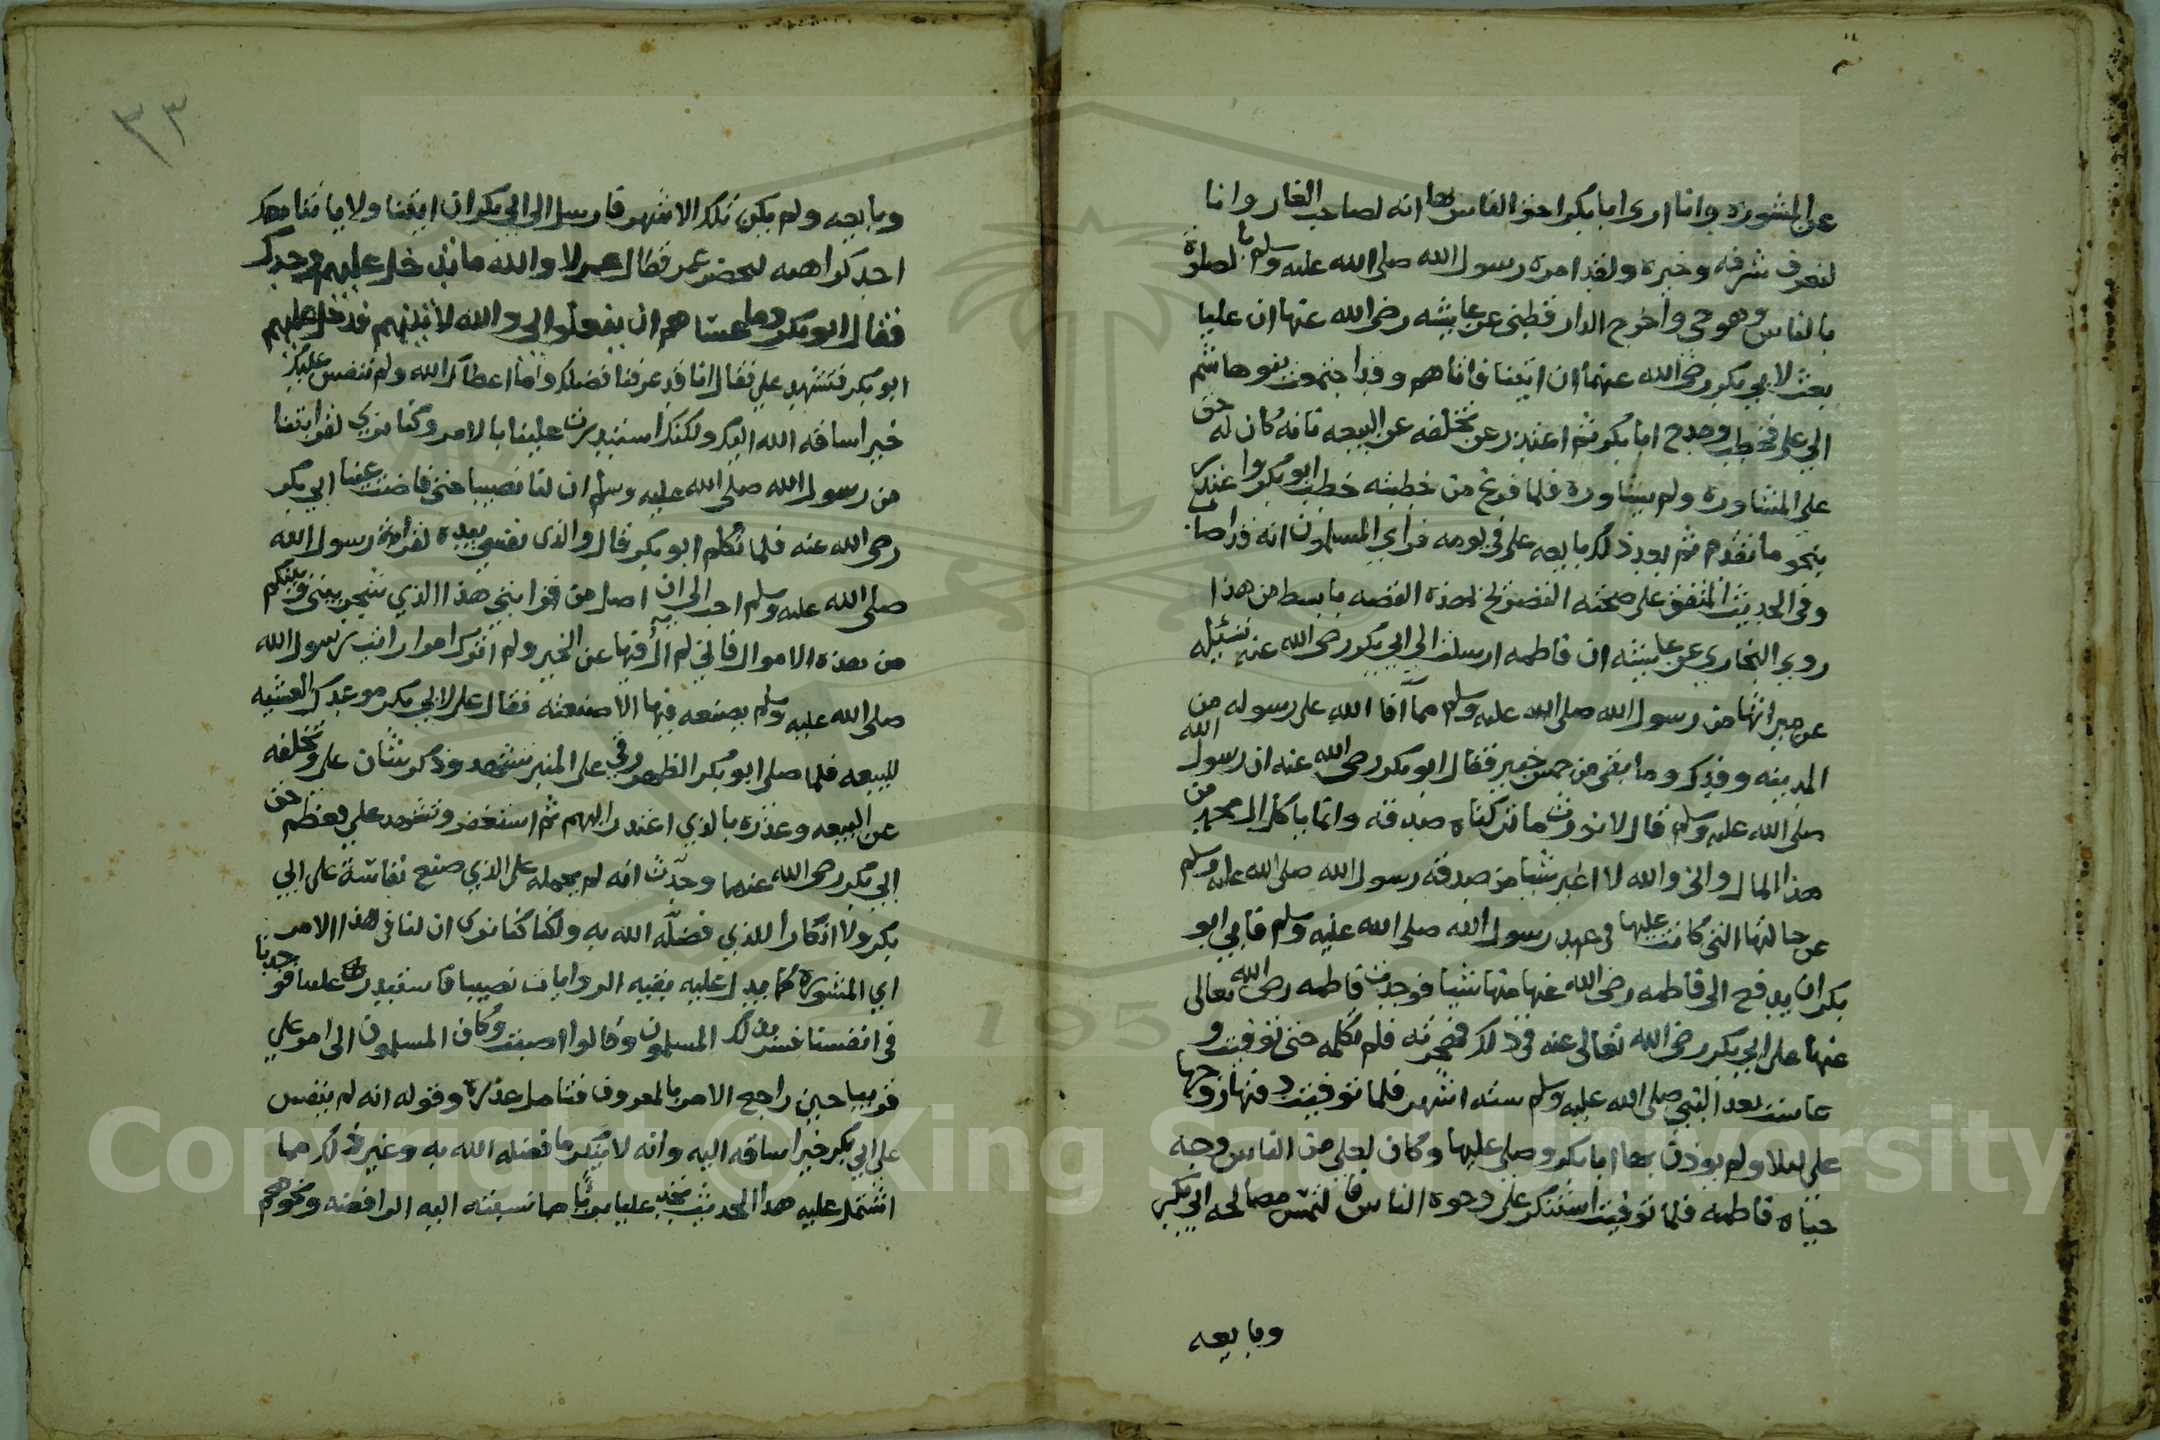 عن المشورة وانا نرى ابا بكر احق الناس بها انه لصاحب الغار وانا
لنعرف شرفه وخيره ولقد امره رسول الله صلى الله عليه وسلم بالصلاة
بالناس وهو حي واخرج الدارقطني عن عايشه رضي الله عنها ان عليا
بعث لابي بكر رضي الله عنهما ان ايتنا فاتاهم وقد اجتمعت بنو هاشم
الى علي فخطب ومدح ابا بكر ثم اعتذر عن تخلفه عن البيعه بانه كان له حق
على المشاورة ولم يشاوره فلما فرغ من خطبته خطب ابو بكر واعتذر
بنحو ما تقدم ثم بعد ذلك بايعه علي في يومه فراي المسلمون انه قد اصاب
وفي الحديث المتفق على صحته التصريح بهذه القصه بابسط من هذا
روي البخاري عن عايشه ان فاطمه ارسلت الى ابي بكر رضي الله عنه تسئله
عن ميراثها من رسول الله صلى الله عليه وسلم مما آفا الله على رسوله من
المدينه وفدك وما بقي من خمس خيبر فقال ابو بكر رضي الله عنه ان رسول الله
صلى الله عليه وسلم قال لا نورث ما تركناه صدقه وانما ياكل ال محمد من
هذا المال واني والله لا اغير شيا من صدقه رسول الله صلى الله عليه وسلم
عن حالتها التي كانت عليها في عهد رسول الله صلى الله عليه وسلم فابي ابو
بكر ان يدفع الى فاطمه رضي الله عنها منها شيا فوجدت فاطمه رضي الله تعالى
عنها على ابي بكر رضي الله تعالى عنه في ذلك فهجرته فلم تكلمه حتى توفيت و
عاشت بعد النبي صلى الله عليه وسلم سته اشهر فلما توفيت دفنها زوجها
علي ليلا ولم يوذن بها ابا بكر وصلى عليها وكان لعلي من الناس وجه
حياه فاطمه فلما توفيت استنكر علي وجوه الناس فالتمس مصالحه ابي بكر
وبايعه
٣٣
وبايعه ولم يكن تلك الاشهر فارسل الى ابي بكر ان ايتنا ولا ياتنا معك
احد كراهيه لمحضر عمر فقال عمر لا والله ما تدخل عليهم وحدك
فقال ابو بكر وما عساهم ان يفعلوا لي والله لاتينهم فدخل عليهم
ابو بكر فتشهد علي فقال انا قد عرفنا فضلك وما اعطاك الله ولم ننفس عليك
خيرا ساقه الله اليك ولكنك استبددت علينا بالامر وكنا نري لقرابتنا
من رسول الله صلى الله عليه وسلم ان لنا نصيبا حتى فاضت عينا ابي بكر
رضي الله عنه فلما تكلم ابو بكر قال والذي نفسي بيده لقرابة رسول الله
صلى الله عليه وسلم احب الى ان اصل من قرابتي هذا الذي شجر بيني وبينكم
من هذه الاموال فاني لم آل فيها عن الخير ولم اترك امرا رايت رسول الله
صلى الله عليه وسلم يصنعه فيها الا صنعته فقال علي لابي بكر موعدك العشيه
للبيعه فلما صلى ابو بكر الظهر رقي على المنبر فتشهد وذكر شان علي وتخلفه
عن البيعه وعذره بالذي اعتذر اليهم ثم استغفر وتشهد علي فعظم حق
ابي بكر رضي الله عنهما وحدث انه لم يحمله على الذي صنع نفاسة على ابي
بكر ولا انكارا للذي فضله الله به ولكنا كنا نرى ان لنا في هذا الامر
اي المشورة كما يدل عليه بقيه الروايات نصيبا فاستبدت علينا فوجدنا
في انفسنا فسر بذلك المسلمون وقالوا اصبت وكان المسلمون الى امر علي
قريبا حين راجع الامر بالمعروف فتامل عذره وقوله انه لم ينفس
على ابي بكر خيرا ساقه اليه وانه لا ينكر ما فضله الله به وغير ذلك مما
اشتمل عليه هذا الحديث تجد عليا بريا مما نسبته اليه الرافضه ونحوهم
Copyright © King Saud University
1957